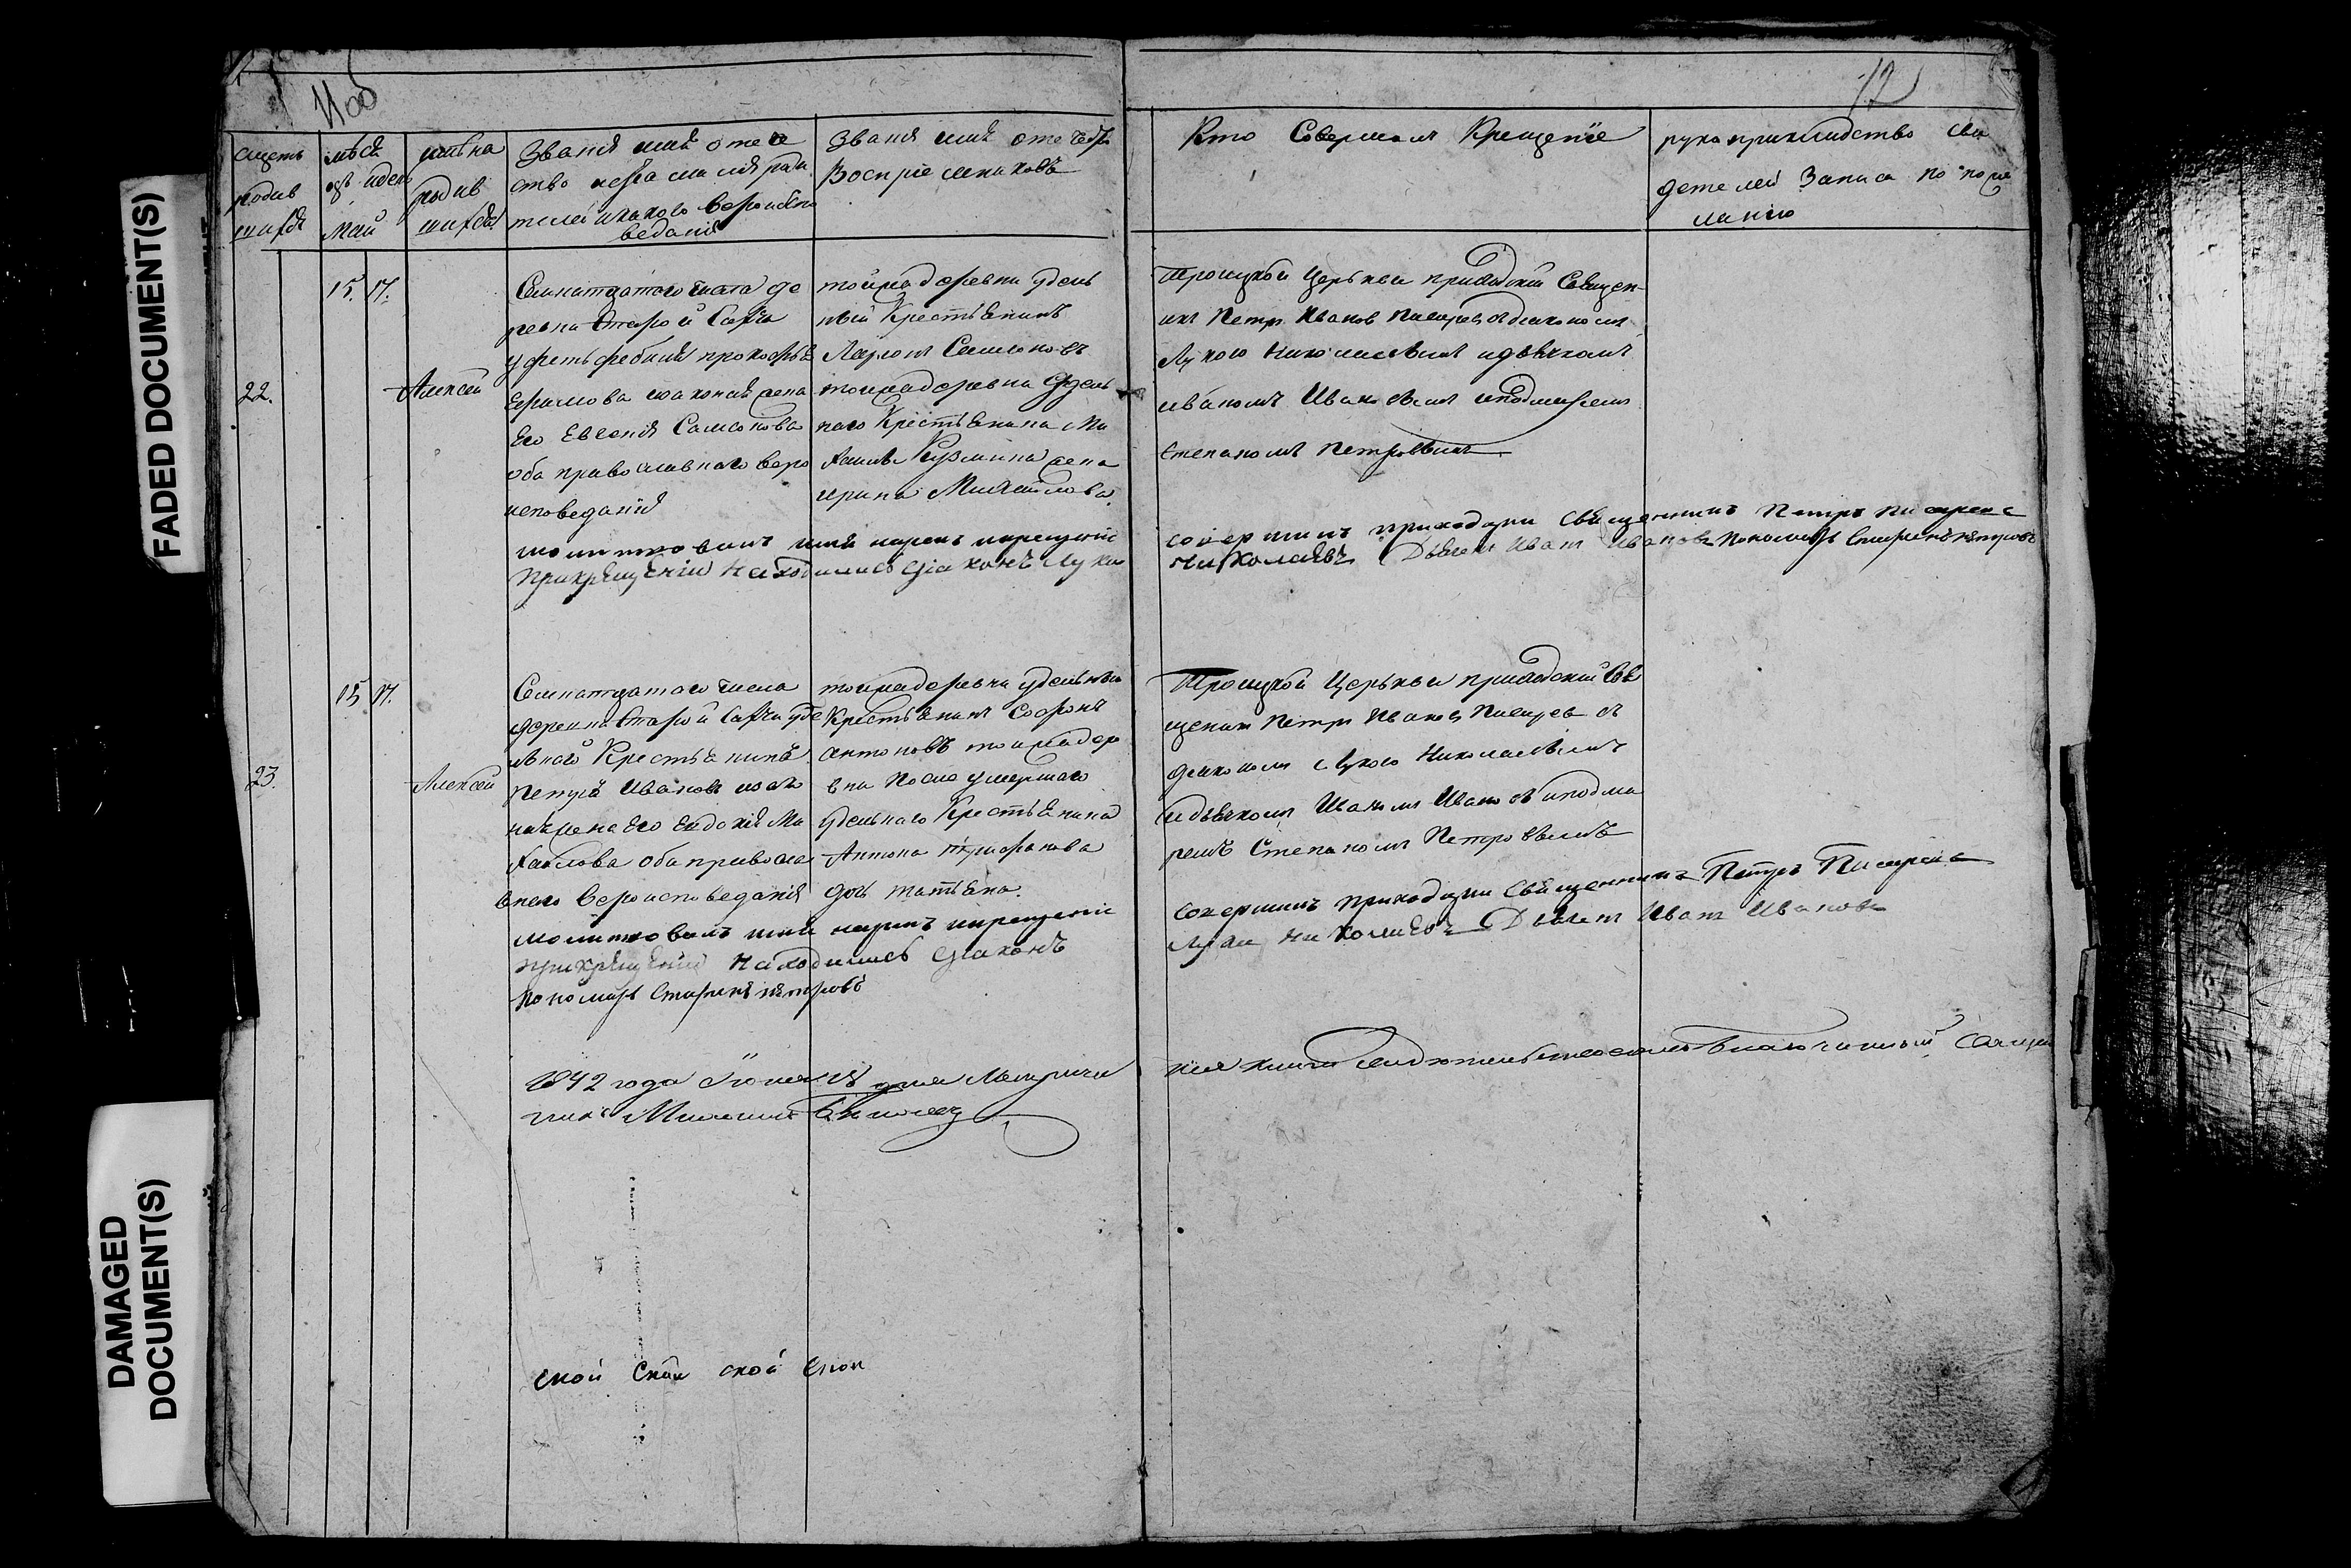 FADED DOCUMENT(S)
DAMAGED
DOCUMENT(S)
11об
12
щетъ
родив
шихся
Май
имѣна
родив
шихся
Званія имѣ отече
ство
телей икакого вероиспо
веданія
Званія имѣ отечество
Воспріемниковъ
Кто Совершалъ Крещеніе
рукоприкладство сви
детелей Записа по поже
ланію
22.
15. 17.
Алексей
Семнатцатого числа де
ревни Старой
Прокофья
Ефимова законная жена
Его Евгенія Самсонова
оба православного веро
исповеданія
тоижадеревни удель
ный Крестьянинъ
Ларионъ Самсоновъ
тоижадеревни Удель
наго Крестьянина Ми
хаила Кузмина жена
ирина Михайлова.
Троицкой Церькви приходский Священ
икъ Петръ Иванов Писарев здиякономъ
Лукою Николаевымъ идьячкомъ
иваномъ Ивановымъ ипономарем
Степаномъ Петровымъ
молитвовалъ имя нарекъ икрещеніе
прикрещеніи находились діаконъ Лука
совершилъ приходский священникъ Петръ Писарев
Николаевъ Дьячекъ Иванъ Ивановъ Пономарь Степанъ петровъ
23.
15 17.
Алексей
Семнатцатого числа
деревни Старой
льного Крестьянина
Петра Иванова
жена Его Евдокія Ми
хайлова оба правосла
внего вероисповеданія
тоижадеревни удельный
Крестьянинъ Софронъ
антоновъ тоижадере
вни После умершаго
Удельного Крестьянина
Антона Трифанова
дочь татьяна.
Троицкой Церькви приходский Свя
щеникъ Петръ Иванов Писарев съ
дияконом Лукою Николаевымъ
идьячком Иваном Ивановы ипонма
ремъ Степаномъ Петровымъ
молитвовалъ имя нарекъ икрещеніе
прикрещеніи находились діаконъ
Пономарь Степанъ петровъ
совершилъ приходский священникъ Петръ Писарев
Лука Николаевъ Дьячекъ Иванъ Ивановъ
1842 года Июня 18 дня Метричи
ския книги свидетельствовалъ благочинный Священ
никъ
ской ской ской скои